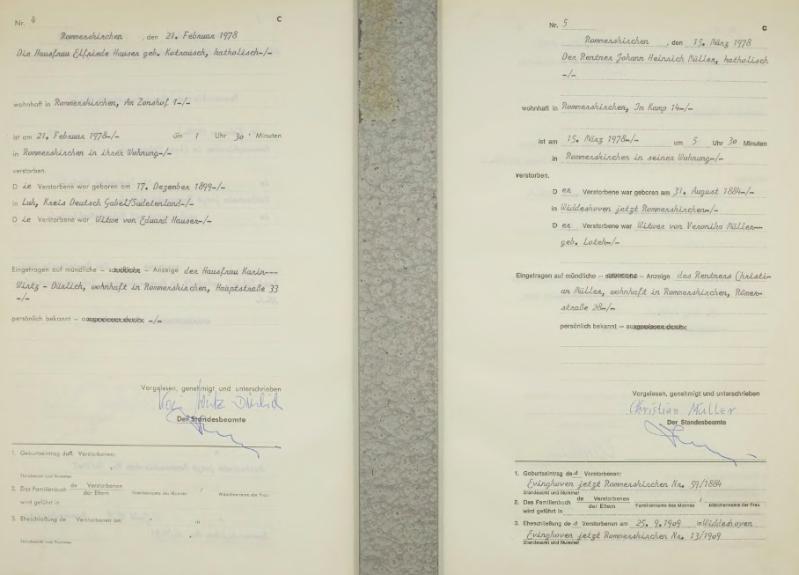 Nr. 8
C
Rommerskirchen, den 21. Februar 1978
Die Hausfrau Elfriede Hauser geb. katholisch-/-
wohnhaft in Rommerskirchen, An Zonshof 1-/-
ist am 21. Februar 1978-/- um 1 Uhr 30 Minuten
in Rommerskirchen in ihrer Wohnung-/-
verstorben.
D ie Verstorbene war geboren am 17. Dezember 1899-/-
in Luh, Kreis Deutsch Gabel/Sudetenland-/-
D ie Verstorbene war Witwe von Eduard Hauser-/-
Eingetragen auf mündliche – schriftliche – Anzeige der Hausfrau Karin---
Wirtz - Dürlich, wohnhaft in Rommerskirchen, Hauptstraße 33
-/-
persönlich bekannt – ausgewiesen durch -/-
Vorgelesen, genehmigt und unterschrieben
Wirtz Dürlich
Der Standesbeamte
1. Geburtseintrag de Verstorbenen:
Standesamt und Nummer
2. Das Familienbuch de Verstorbenen
der Eltern
Familienname des Mannes / Mädchenname der Frau
wird geführt in
3. Eheschließung de Verstorbenen am in
Standesamt und Nummer
Nr. 5
C
Rommerskirchen, den 15. März 1978
Der Rentner Johann Heinrich Müller, katholisch
-/-
wohnhaft in Rommerskirchen, Im Kamp 14-/-
ist am 15. März 1978-/- um 5 Uhr 30 Minuten
in Rommerskirchen in seiner Wohnung-/-
verstorben.
D er Verstorbene war geboren am 31. August 1884-/-
in Widdeshoven jetzt Rommerskirchen-/-
D er Verstorbene war Witwer von Veronika Müller--
geb.
Eingetragen auf mündliche – schriftliche – Anzeige des Rentners Christi-
an Müller, wohnhaft in Rommerskirchen, Römer-
straße 28-/-
persönlich bekannt – ausgewiesen durch
Vorgelesen, genehmigt und unterschrieben
Christian Müller
Der Standesbeamte
1. Geburtseintrag de s Verstorbenen:
Evinghoven jetzt Rommerskirchen Nr. 59/1884
Standesamt und Nummer
2. Das Familienbuch de Verstorbenen
der Eltern
Familienname des Mannes / Mädchenname der Frau
wird geführt in
3. Eheschließung de s Verstorbenen am 25. 9. 1909 in Widdeshoven
Evinghoven jetzt Rommerskirchen Nr. 13/1909
Standesamt und Nummer